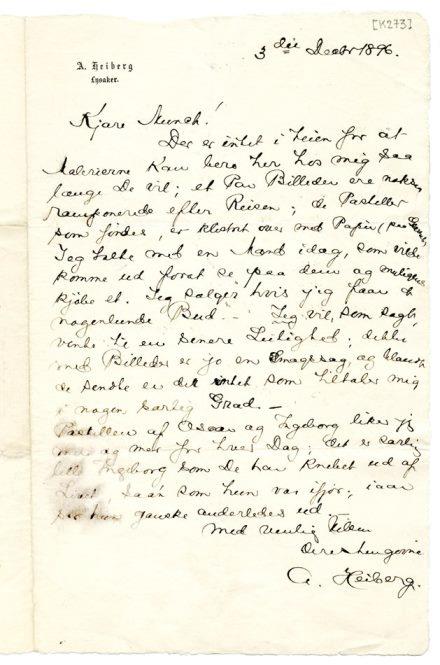 [K273]
A. Heiberg
Lysaker.
3die Decbr 1896.
Kjære Munch!
Der er intet i Veien for at
Malerierne kan bero her hos mig saa
længe De vil; et Par Billeder ere noksaa
ramponerede efter Reisen; de Pasteller
som fandes, er klistret over med Papir
Jeg talte med en Mand idag, som vilde
komme ud forat se paa dem og muligens
kjøbe et. Jeg sælger hvis jeg faar et
nogenlunde Bud. – Jeg vil, som sagt,
vente til en senere Leilighed; dette
med Billeder er jo en Smagssag, og blandt
de sendte er det intet som tiltaler mig
i nogen særlig Grad. –
Pastellen af Oscar og Ingeborg liker jeg
og mer for hver Dag; det er særlig
Ingeborg som De har knebet ud af
Livet, saan som hun var ifjor; iaar
ser hun ganske anderledes ud.
Med venlig Hilsen
Deres hengivne
A. Heiberg.